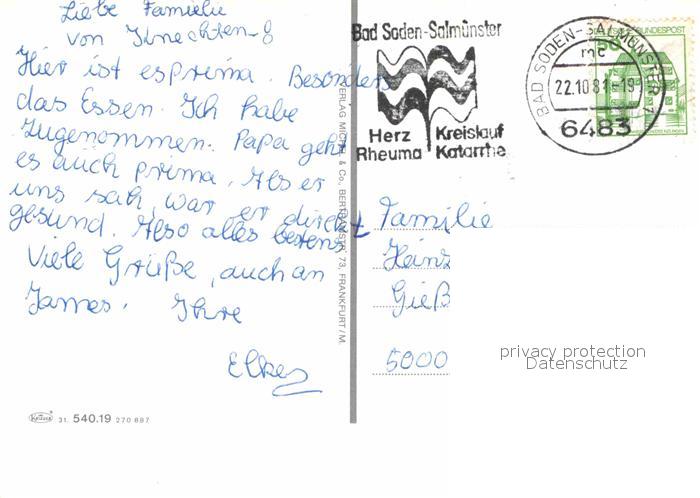 Liebe Familie
von
Hier ist es prima. Besonders
das Essen. Ich habe
zugenommen. Papa geht
es auch prima. Als er
uns sah, war er direkt
gesund. Also alles bestens
Viele Grüße, auch an
James. Ihre
Elke
Krüger 31. 540.19 270 887
FRANKFURT/M.
Bad Soden-Salmünster
Herz Kreislauf
Rheuma Katarrhe
BAD SODEN-SALMÜNSTER
mc
22.10.81-19
6483
BUNDESPOST
Familie
Heinz
Gieß
5000
privacy protection
Datenschutz